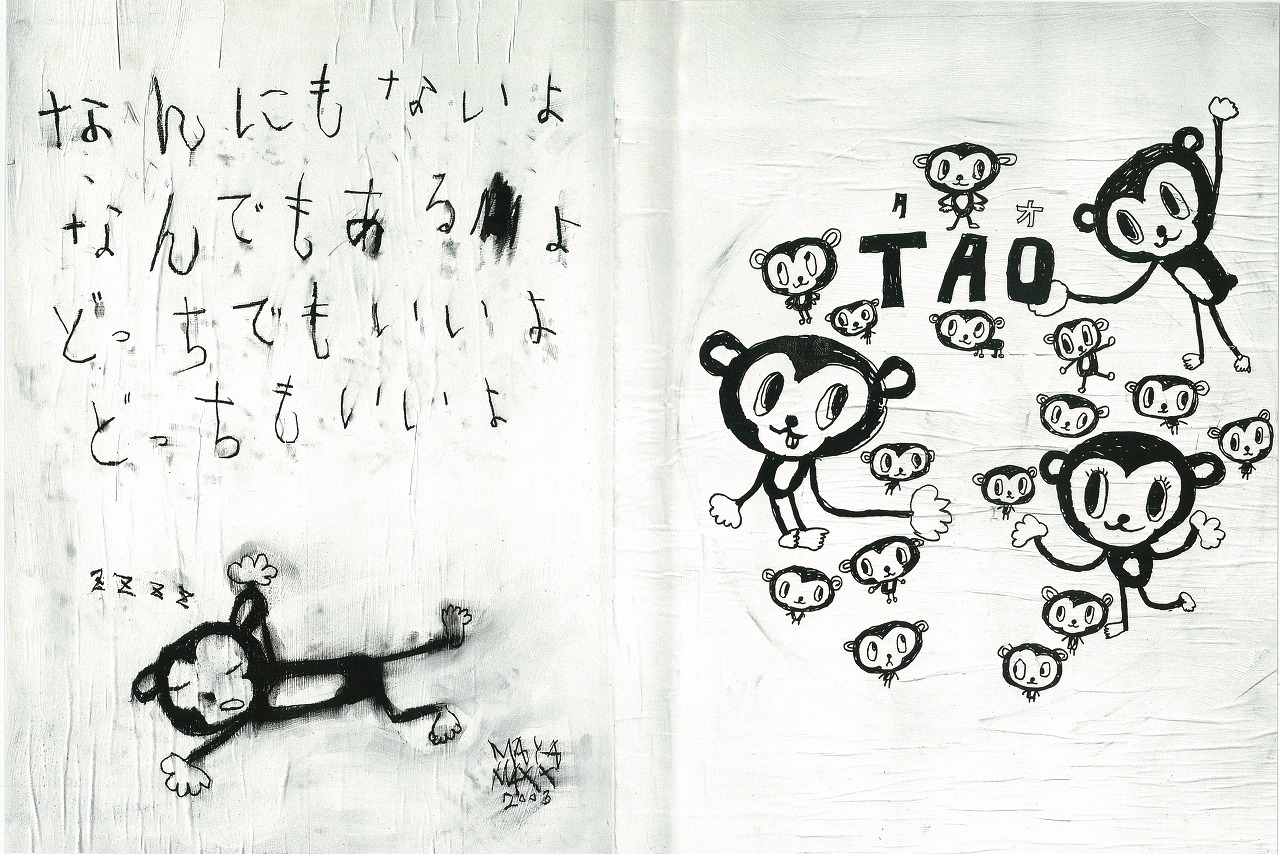 なんにもないよ
なんでもあるよ
どっちでもいいよ
どっちもいいよ
zzzz
MAYA
MAXX
2003
タオ
TAO